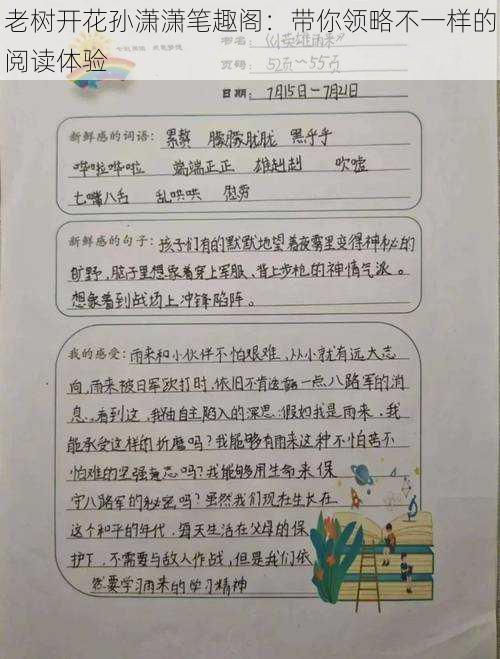 老树开花孙潇潇笔趣阁：带你领略不一样的
阅读体验
书名：《小英雄雨来》
页码：52页~55页
日期：7月15日-7月21日
新鲜感的词语：累赘 朦朦胧胧 黑乎乎
哗啦哗啦 端端正正 雄赳赳 吹嘘
七嘴八舌 乱哄哄 慰劳
新鲜感的句子：孩子们有的默默地望着夜雾里变得神秘的
旷野，脑子里想象着穿上军服、背上步枪的神情气派。
想象着到战场上冲锋陷阵。
我的感受：雨来和小伙伴不怕艰难，从小就有远大志
向，雨来被日军欧打时，依旧不肯透露一点八路军的消
息。看到这，我独自主陷入的深思：假如我是雨来，我
能承受这样的折磨吗？我能够有雨来这种不怕苦不
怕难的坚强意志吗？我能够用生命来保
守八路军的秘密吗？虽然我们现在生长在
这个和平的年代，每天生活在父母的保
护下，不需要与敌人作战，但是我们依
然要学习雨来的学习精神